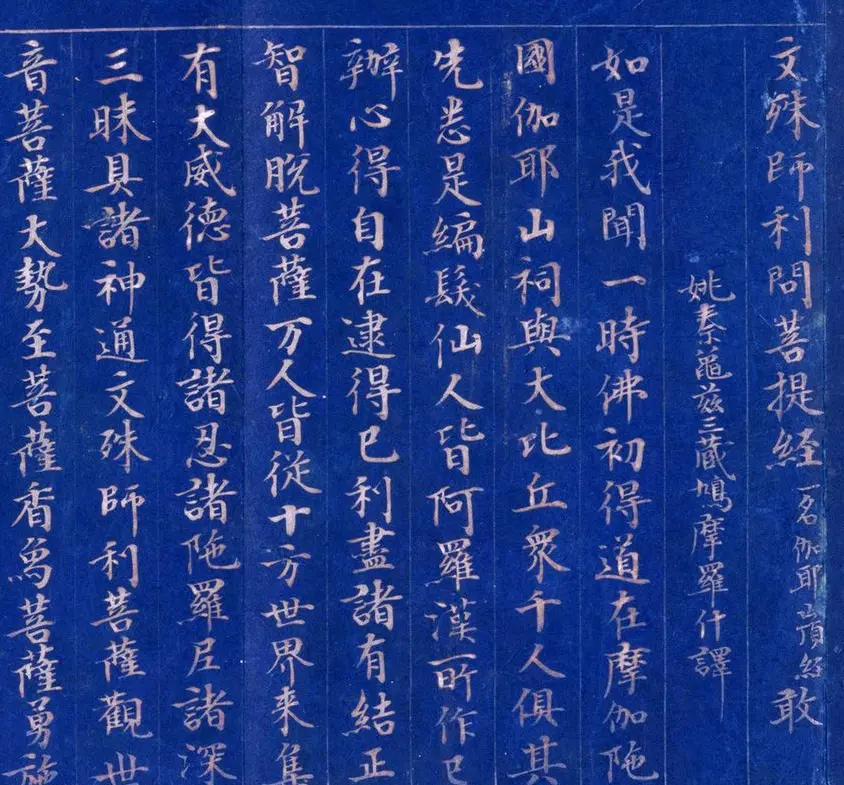 文殊師利問菩提経一名伽耶山頂経 敢
姚秦龜兹三蔵鳩摩羅什譯
如是我聞一時佛初得道在摩伽陁
國伽耶山祠與大比丘衆千人俱其
先悉是編髮仙人皆阿羅漢所作已
辦心得自在逮得己利盡諸有結正
智解脫菩薩万人皆從十方世界来集
有大威德皆得諸忍諸陁羅尼諸深
三昧具諸神通文殊師利菩薩觀世
音菩薩大勢至菩薩香烏菩薩勇施